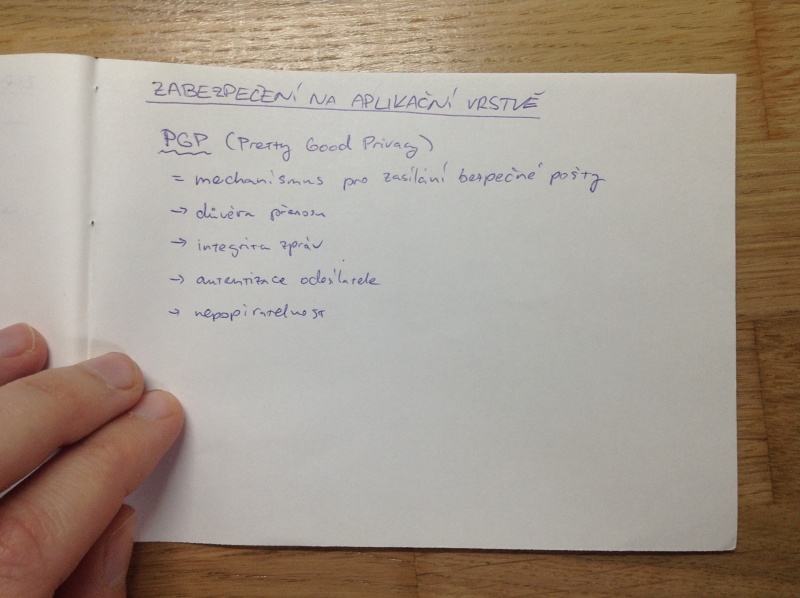 ZABEZPEČENÍ NA APLIKAČNÍ VRSTVĚ
PGP (Pretty Good Privacy)
= mechanismus pro zasílání bezpečné pošty
→ důvěra přenosu
→ integrita zpráv
→ autentizace odesílatele
→ nepopiratelnost